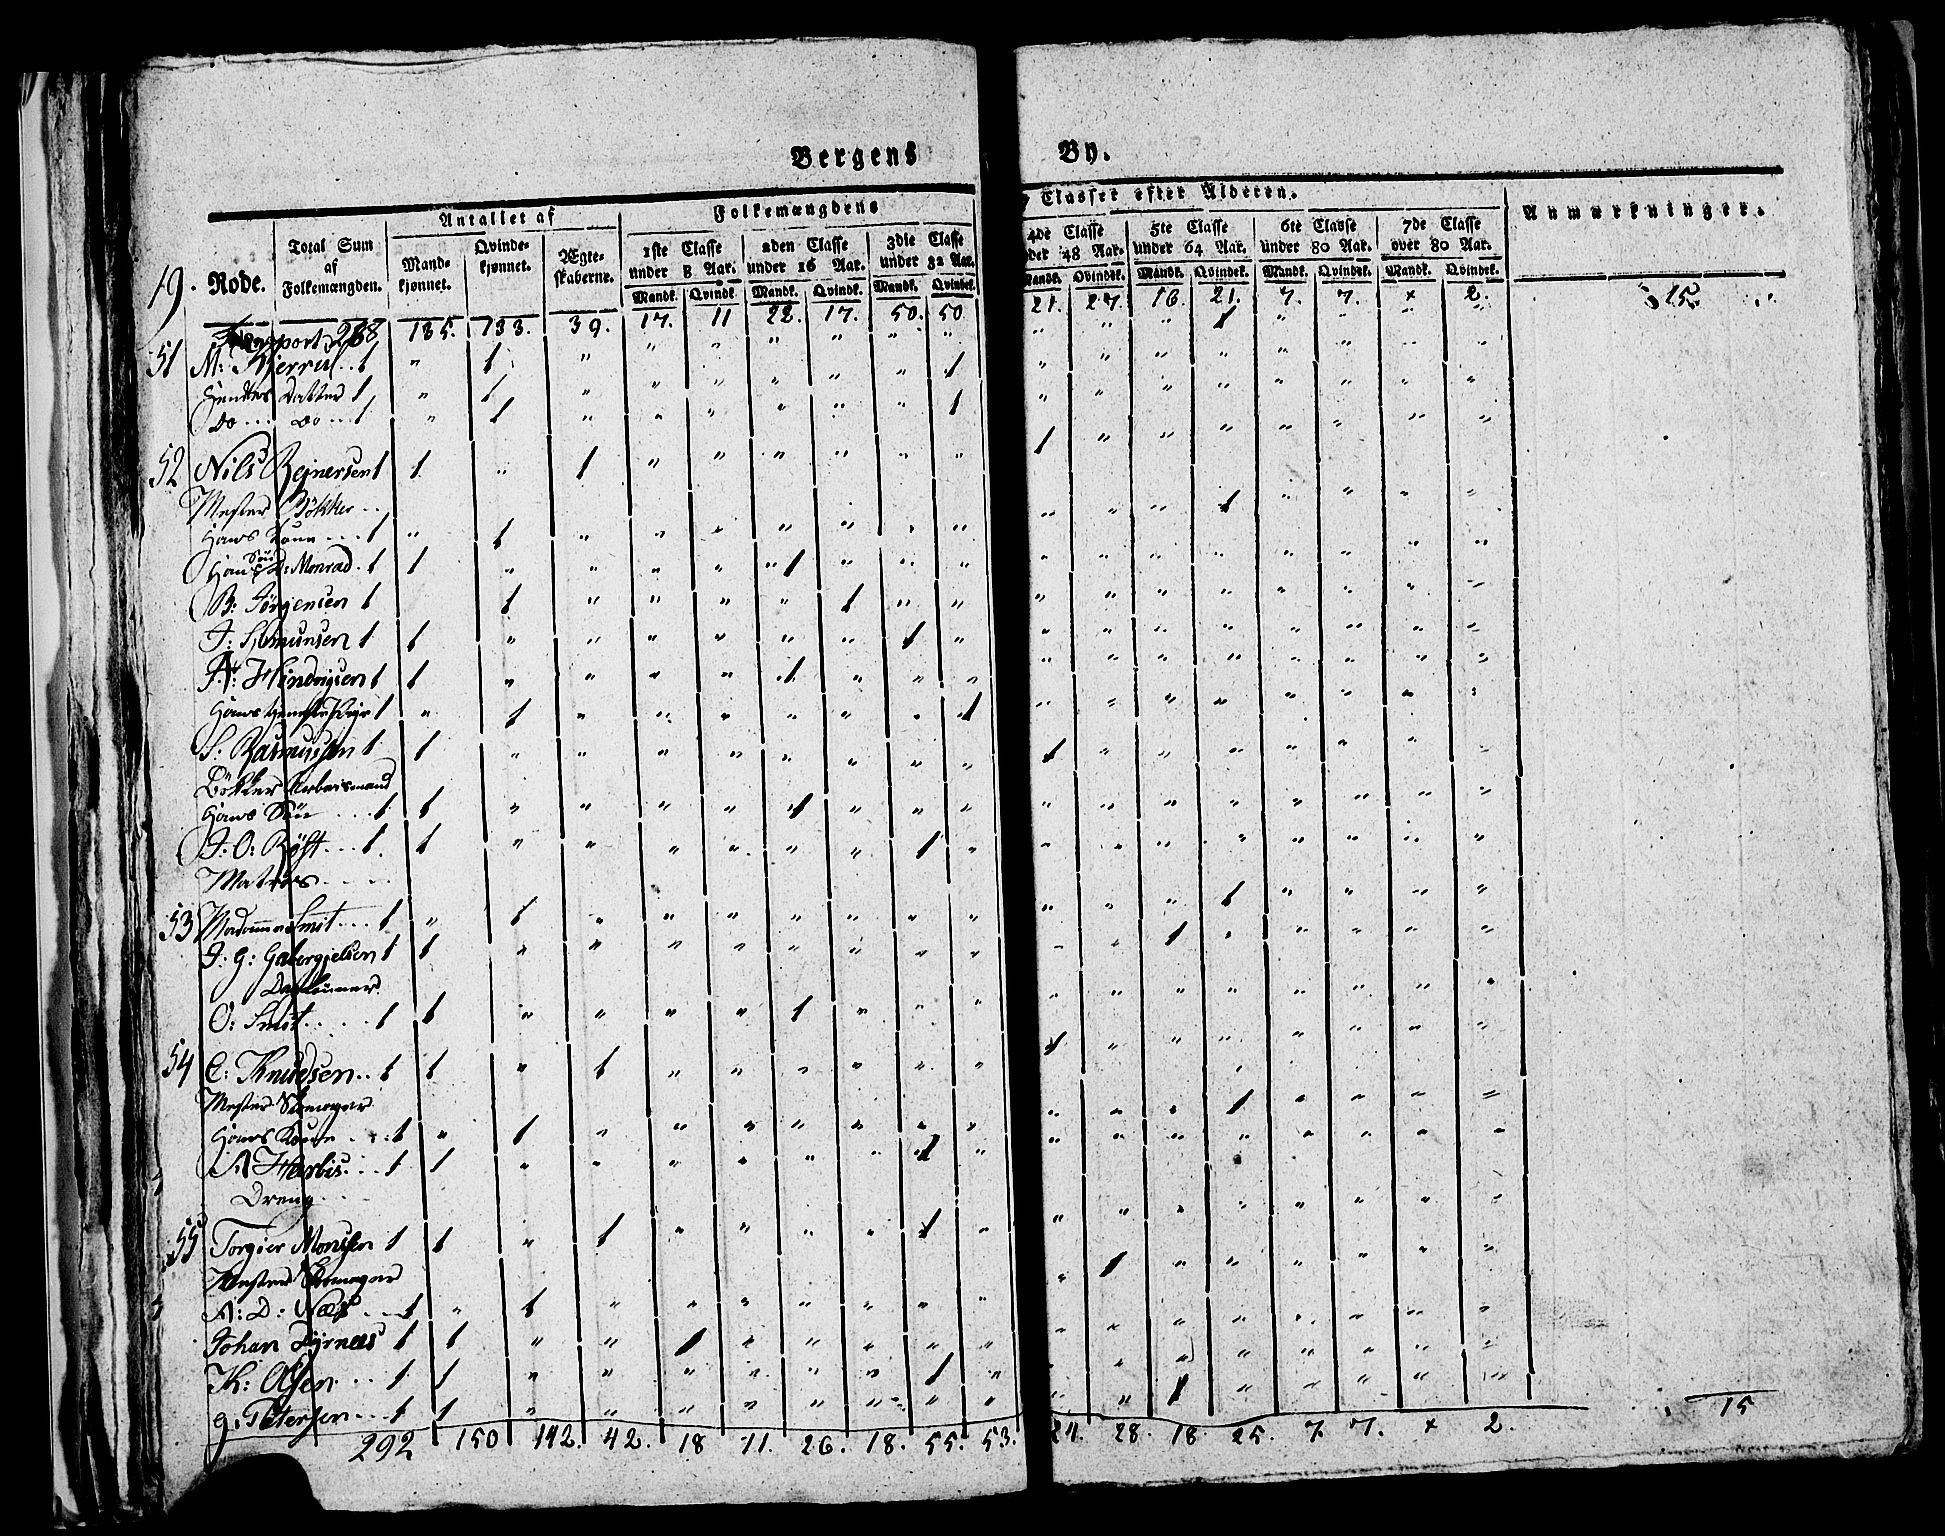 Bergens By.
Antallet af Folkemængdens 7 Classer efter Alderen.
19. Rode. Total Sum af Folkemængden. Mand-kjønnet. Qvinde-kjønnet. Ægte-skaberne. 1ste Classe under 8 Aar. 2den Classe under 16 Aar. 3die Classe under 32 Aar. 4de Classe under 48 Aar. 5te Classe under 64 Aar. 6te Classe under 80 Aar. 7de Classe over 80 Aar. Anmærkninger.
Mandk. Qvindk. Mandk. Qvindk. Mandk. Qvindek. Mandk. Qvindek. Mandk. Qvindek. Mandk. Qvindek. Mandk. Qvindek.
Transport 268 135. 133. 39. 17. 11 22. 17. 50. 50 21. 27. 16. 21. 7. 7. × 2. 15
51 M: 1 " 1 " " " " " " " " " " 1 " " " "
Datter 1 " 1 " " " " " " 1 " " " " " " " "
Do ... Do ... 1 " 1 " " " " " " 1 " " " " " " " "
52 Nils Rejnersen 1 1 " 1 " " " " " " 1 " " " " " " "
Mester Bøkker
Hans Kone ... 1 " 1 " " " " " " " " " " 1 " " " "
Hans Søn D: Monrad. 1 1 " " " " 1 " " " " " " " " " " "
B: Jørgensen 1 1 " " " " 1 " " " " " " " " " "
J: Asmunsen 1 1 " " " " " " 1 " " " " " " " " "
H: Hindrigsen 1 1 " " " " 1 " " " " " " " " " " "
Hans 1 " 1 " " " " " " 1 " " " " " " " "
S: Rasmussen 1 1 " " " " " " " " 1 " " " " " " "
Bøkker Arbeismand
Hans Søn ... 1 1 " " " " 1 " " " " " " " " " " "
J: O: Røst ... 1 1 " " " " " " 1 " " " " " " " " "
Matros
53 Madamme Smit ... 1 " 1 " " " " " " " " " " 1 " " " "
J: G: Gabergjelsen 1 1 " " " " " " " " " " 1 " " " " "
Dagleuner
O: Smit ... 1 1 " " " " 1 " " " " " " " " " " "
54 C: Knudsen .. 1 1 " 1 " " " " " " 1 " " " " " " "
Mester Skomager
Hans Kone ... 1 " 1 " " " " " " " " " " 1 " " " "
A Harbis ... 1 1 " " " " " " 1 " " " " " " " " "
Dreng
55 Torgier Monsen 1 1 " 1 " " " " 1 " " " " " " " " "
Mester Skomager
A: D: Næss ... 1 " 1 " " " " " " " " 1 " " " " " "
Johan Fyrnæs 1 1 " " 1 " " " " " " " " " " " " "
K: Olsen ... 1 1 " " " " " " 1 " " " " " " " " "
G. Petersen ... 1 1 " " " " " " " " " " 1 " " " " "
292 150 142. 42. 18 11. 26. 18. 55. 53. 24. 28. 18. 25. 7. 7. × 2. 15